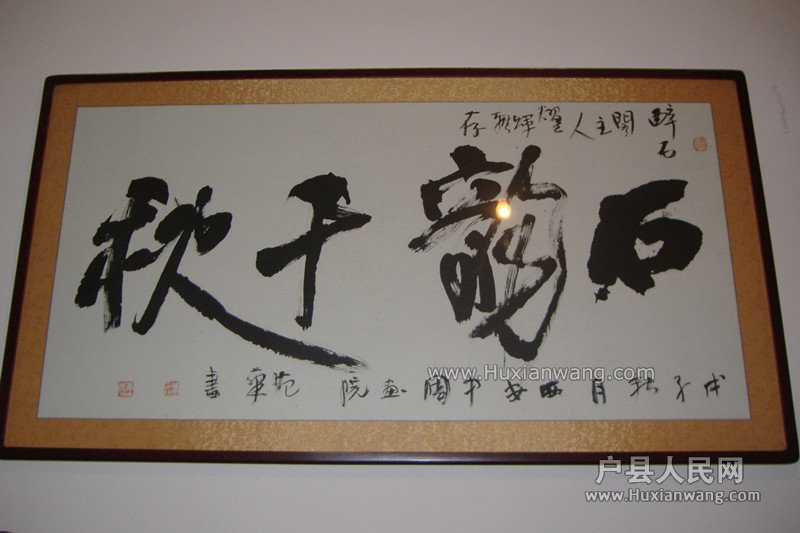 醉石
閣主人耀輝存
石韻千秋
戊子秋月西安中國画院范華書
www.Huxianwang.com
户县人民网
www.Huxianwang.com